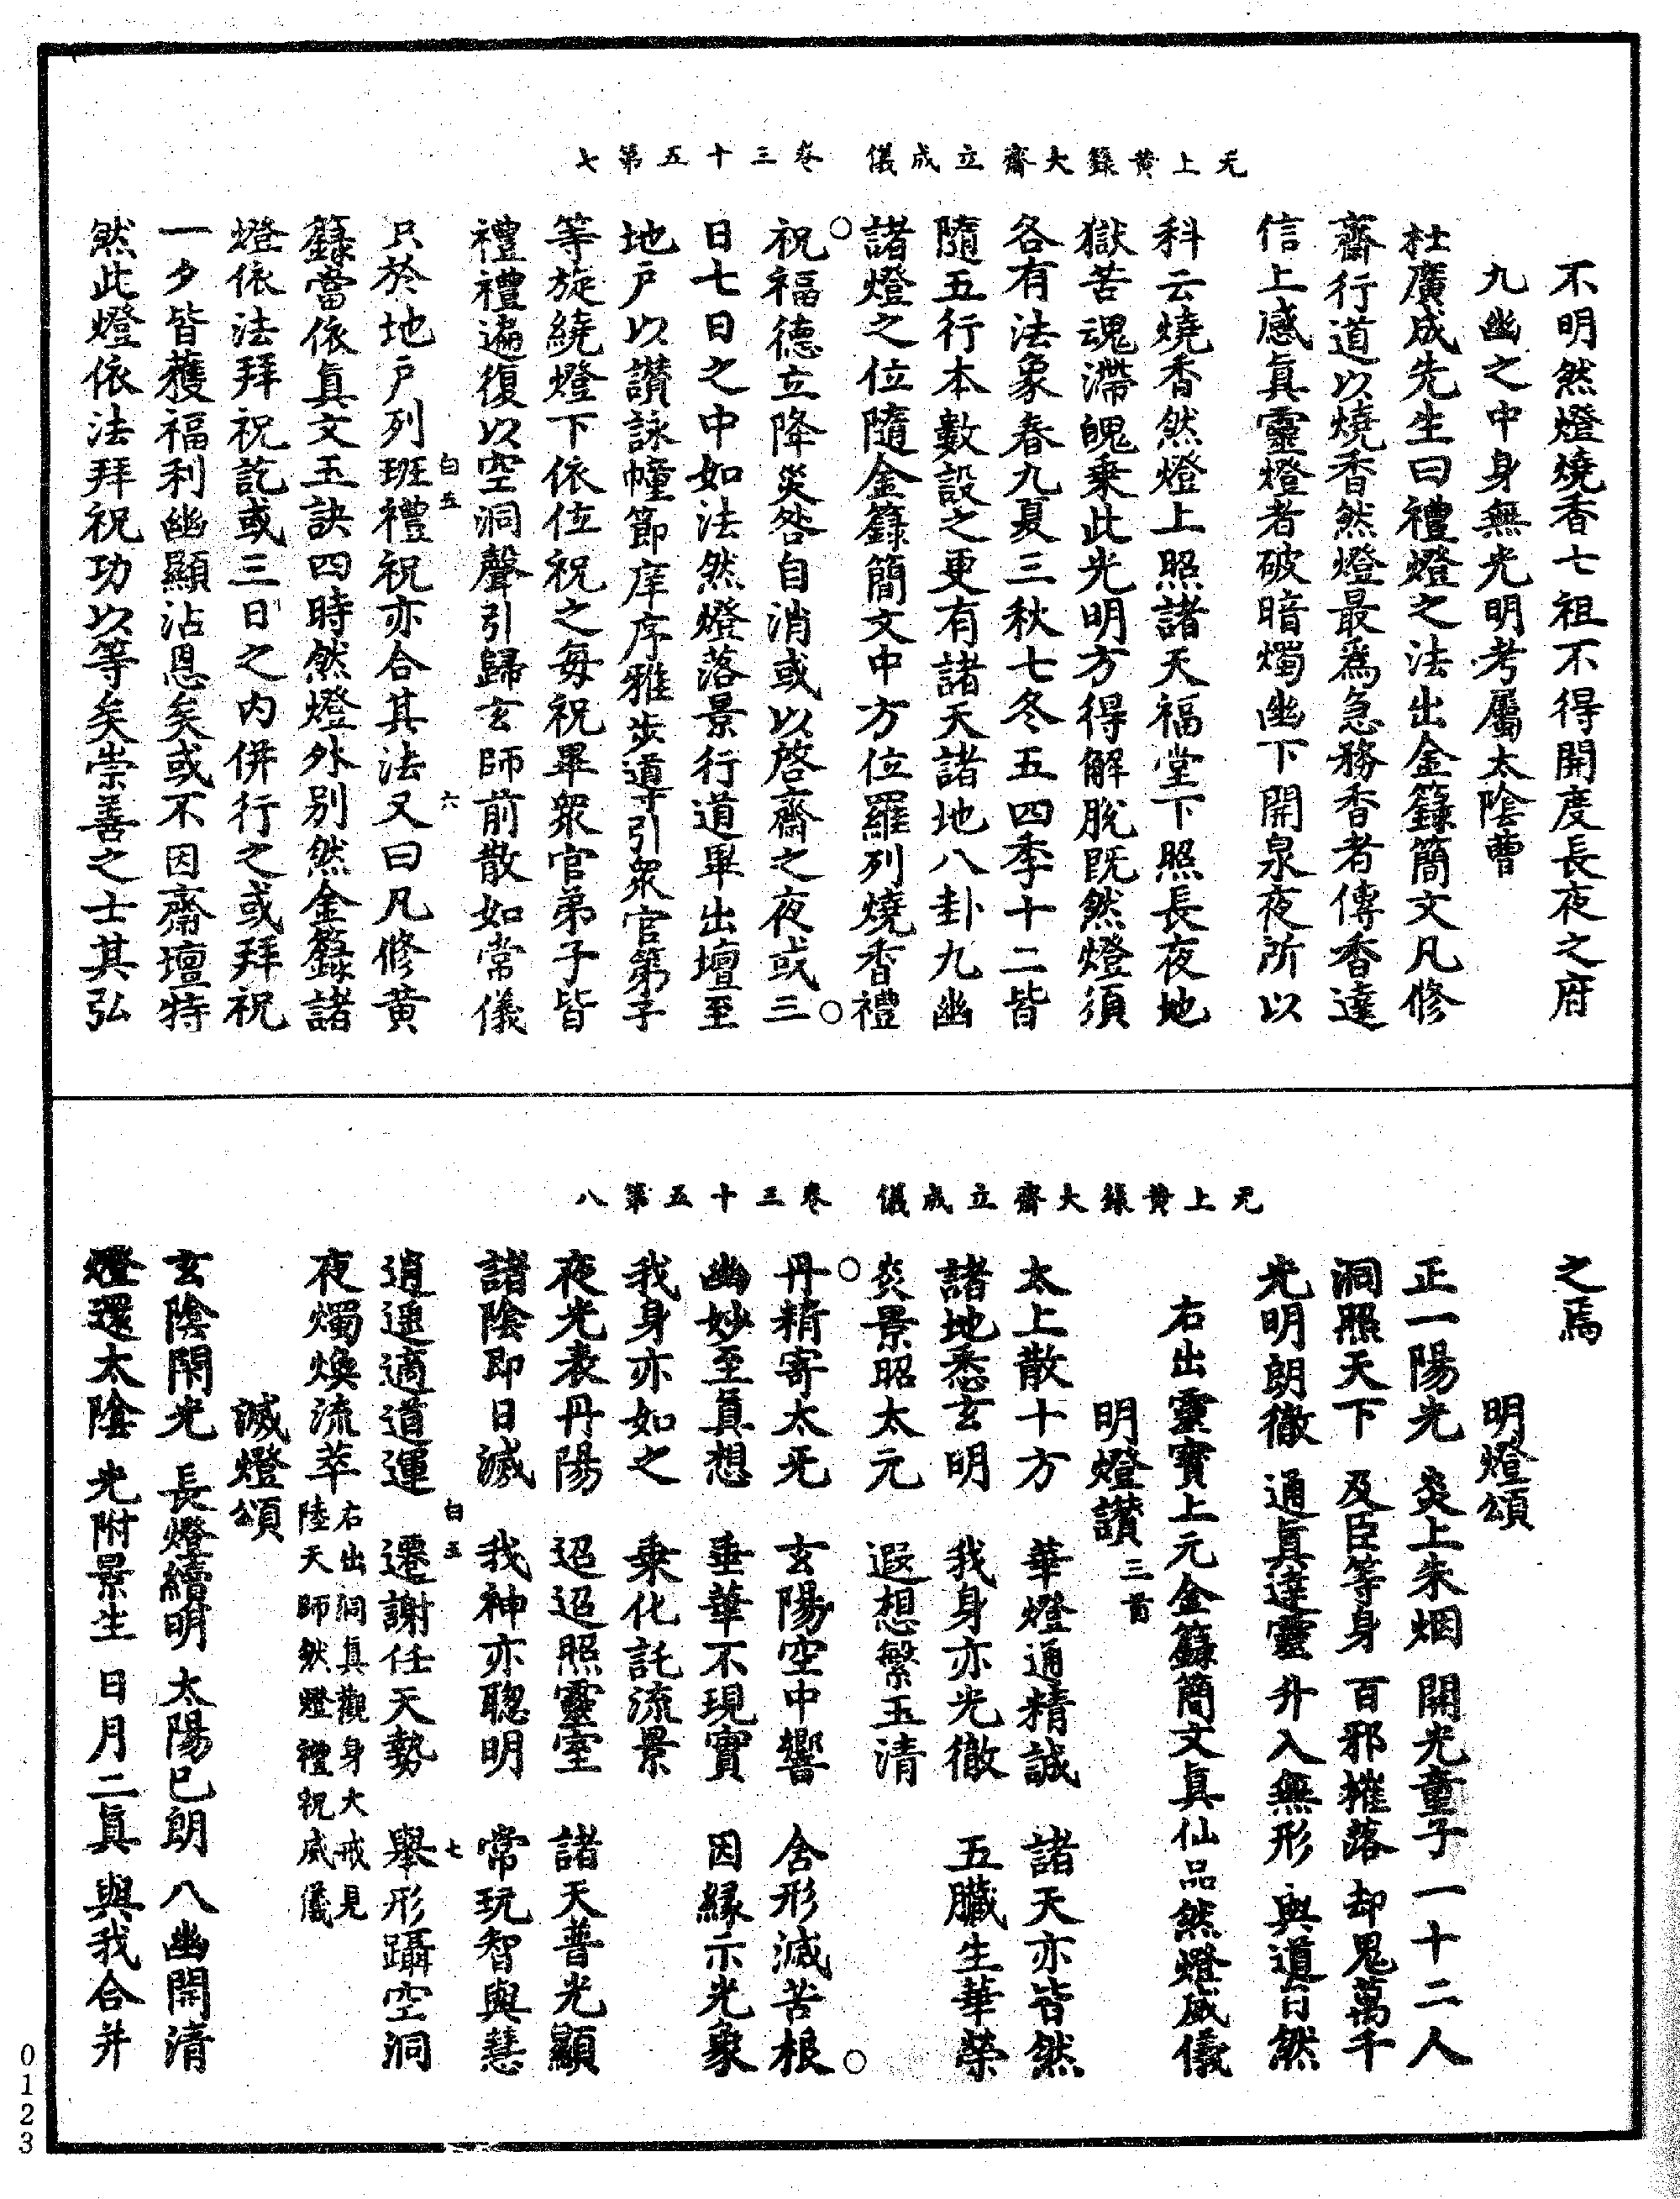 无上黄籙大齋立成儀　卷三十五第七
不明然燈燒香七祖不得開度長夜之府
九幽之中身無光明考屬太陰曹
杜廣成先生曰禮燈之法出金籙簡文凡修
齋行道以燒香然燈最爲急務香者傳香達
信上感眞靈燈者破暗燭幽下開泉夜所以
科云燒香然燈上照諸天福堂下照長夜地
獄苦魂滯魄乗此光明方得解脫旣然燈須
各有法象春九夏三秋七冬五四季十二皆
隨五行本數設之更有諸天諸地八卦九幽
諸燈之位隨金籙簡文中方位羅列燒香禮
祝福德立降災咎自消或以啓齋之夜或三
日七日之中如法然燈落景行道畢出壇至
地戶以讃詠幢節庠序雅步道引衆官第子
等旋繞燈下依位祝之每祝畢衆官弟子皆
禮禮遍復以空洞聲引歸玄師前散如常儀
只於地戶列班禮祝亦合其法又曰凡修黄
白五
六
籙當依眞文玉訣四時然燈外别然金籙諸
燈依法拜祝訖或三日之内併行之或拜祝
一夕皆獲福利幽顯沾恩矣或不因齋壇特
然此燈依法拜祝功以等矣崇善之士其弘
无上黄籙大齋立成儀　卷三十五第八
之焉
明燈頌
正一陽光　炎上朱烟　開光童子　一十二人
洞照天下　及臣等身　百邪摧落　却鬼萬千
光明朗徹　通眞達靈　升入無形　與道自然
右出靈寶上元金籙簡文眞仙品然燈威儀
明燈讃三首
太上散十方　華燈通精誠　諸天亦皆然
諸地悉玄明　我身亦光徹　五臟生華榮
炎景昭太元　遐想繫玉清
丹精寄太旡　玄陽空中響　含形滅苦根
幽妙至眞想　垂華不現實　因縁示光象
我身亦如之　乗化託流景
夜光表丹陽　迢迢照靈室　諸天普光顯
諸陰即日滅　我神亦聰明　常玩智與慧
逍遥適道運　遷謝任天勢　舉形躡空洞
白五
七
夜燭煥流萃右出洞眞觀身大戒見陸天師然燈禮祝威儀
滅燈頌
玄陰閉光　長燈續明　太陽已朗　八幽開清
燈還太陰　光附景生　日月二眞　與我合并
0123